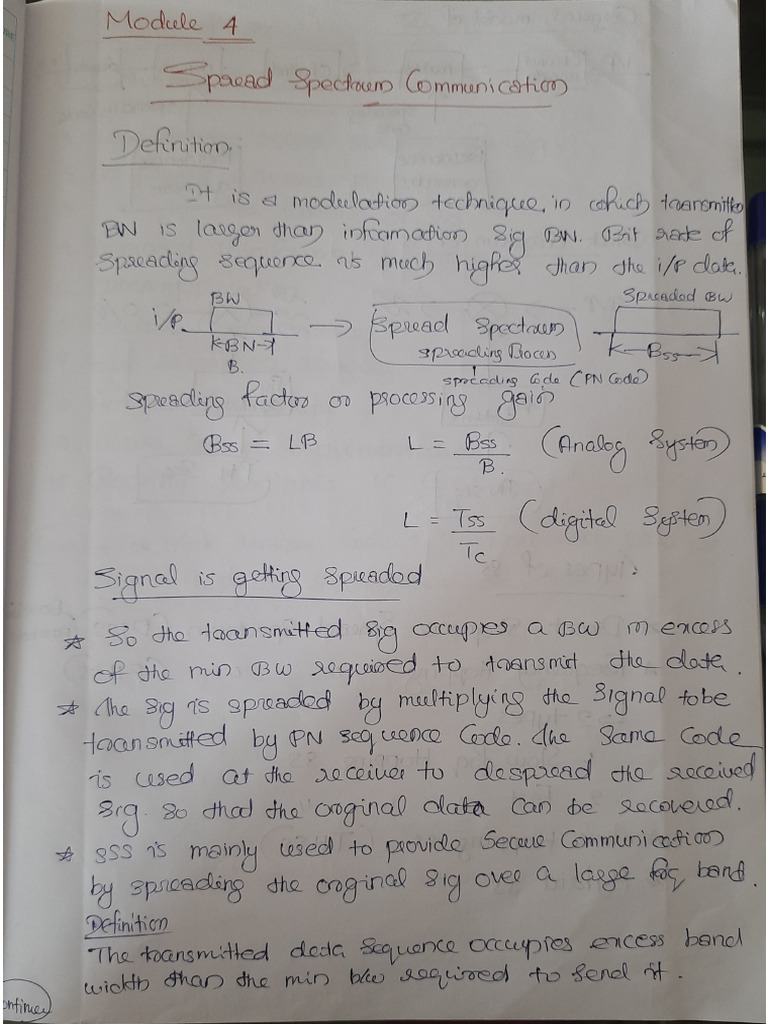 Module 4
Spread Spectrum Communication
Definition
It is a modulation technique, in which transmitted
BW is larger than information sig BW. Bit rate of
spreading sequence is much higher than the i/p data.
BW
Spreaded BW
i/p
Spread Spectrum
spreading Process
K-BW->
B.
K-Bss->
spreading Code (PN Code)
Spreading factor or processing gain
Bss = LB L = Bss/B. (Analog System)
L = Tss/Tc (digital System)
Signal is getting Spreaded
* So the transmitted sig occupies a BW in excess
of the min BW required to transmit the data.
* The sig is spreaded by multiplying the signal to be
transmitted by PN sequence Code. The Same Code
is used at the receiver to despread the received
sig. So that the original data can be recovered.
* SSS is mainly used to provide Secure Communication
by spreading the original sig over a large frq band.
Definition
The transmitted data sequence occupies excess band
width than the min b/w required to send it.
ontinue